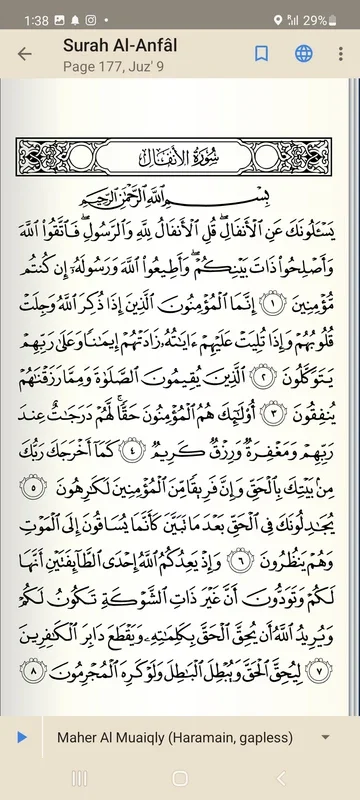 1:38
29%
Surah Al-Anfâl
Page 177, Juz' 9
سُورَةُ الأَنفَال
بِسْمِ ٱللَّهِ ٱلرَّحْمَٰنِ ٱلرَّحِيمِ
يَسْـَٔلُونَكَ عَنِ ٱلْأَنفَالِ ۖ قُلِ ٱلْأَنفَالُ لِلَّهِ وَٱلرَّسُولِ ۖ فَٱتَّقُوا۟ ٱللَّهَ
وَأَصْلِحُوا۟ ذَاتَ بَيْنِكُمْ ۖ وَأَطِيعُوا۟ ٱللَّهَ وَرَسُولَهُۥٓ إِن كُنتُم
مُّؤْمِنِينَ ١ إِنَّمَا ٱلْمُؤْمِنُونَ ٱلَّذِينَ إِذَا ذُكِرَ ٱللَّهُ وَجِلَتْ
قُلُوبُهُمْ وَإِذَا تُلِيَتْ عَلَيْهِمْ ءَايَٰتُهُۥ زَادَتْهُمْ إِيمَٰنًا وَعَلَىٰ رَبِّهِمْ
يَتَوَكَّلُونَ ٢ ٱلَّذِينَ يُقِيمُونَ ٱلصَّلَوٰةَ وَمِمَّا رَزَقْنَٰهُمْ
يُنفِقُونَ ٣ أُو۟لَٰٓئِكَ هُمُ ٱلْمُؤْمِنُونَ حَقًّا ۚ لَّهُمْ دَرَجَٰتٌ عِندَ
رَبِّهِمْ وَمَغْفِرَةٌ وَرِزْقٌ كَرِيمٌ ٤ كَمَآ أَخْرَجَكَ رَبُّكَ
مِنۢ بَيْتِكَ بِٱلْحَقِّ وَإِنَّ فَرِيقًا مِّنَ ٱلْمُؤْمِنِينَ لَكَٰرِهُونَ ٥
يُجَٰدِلُونَكَ فِى ٱلْحَقِّ بَعْدَ مَا تَبَيَّنَ كَأَنَّمَا يُسَاقُونَ إِلَى ٱلْمَوْتِ
وَهُمْ يَنظُرُونَ ٦ وَإِذْ يَعِدُكُمُ ٱللَّهُ إِحْدَى ٱلطَّآئِفَتَيْنِ أَنَّهَا
لَكُمْ وَتَوَدُّونَ أَنَّ غَيْرَ ذَاتِ ٱلشَّوْكَةِ تَكُونُ لَكُمْ
وَيُرِيدُ ٱللَّهُ أَن يُحِقَّ ٱلْحَقَّ بِكَلِمَٰتِهِۦ وَيَقْطَعَ دَابِرَ ٱلْكَٰفِرِينَ
٧ لِيُحِقَّ ٱلْحَقَّ وَيُبْطِلَ ٱلْبَٰطِلَ وَلَوْ كَرِهَ ٱلْمُجْرِمُونَ ٨
Maher Al Muaiqly (Haramain, gapless)